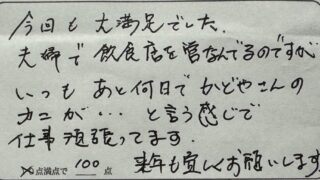 今回も大満足でした。
夫婦で飲食店を営なんでるのですが
いつもあと何日でかどやさんの
カニが…と言う感じで
仕事頑張ってます。
点満点で 100 点
来年も宜しくお願いします